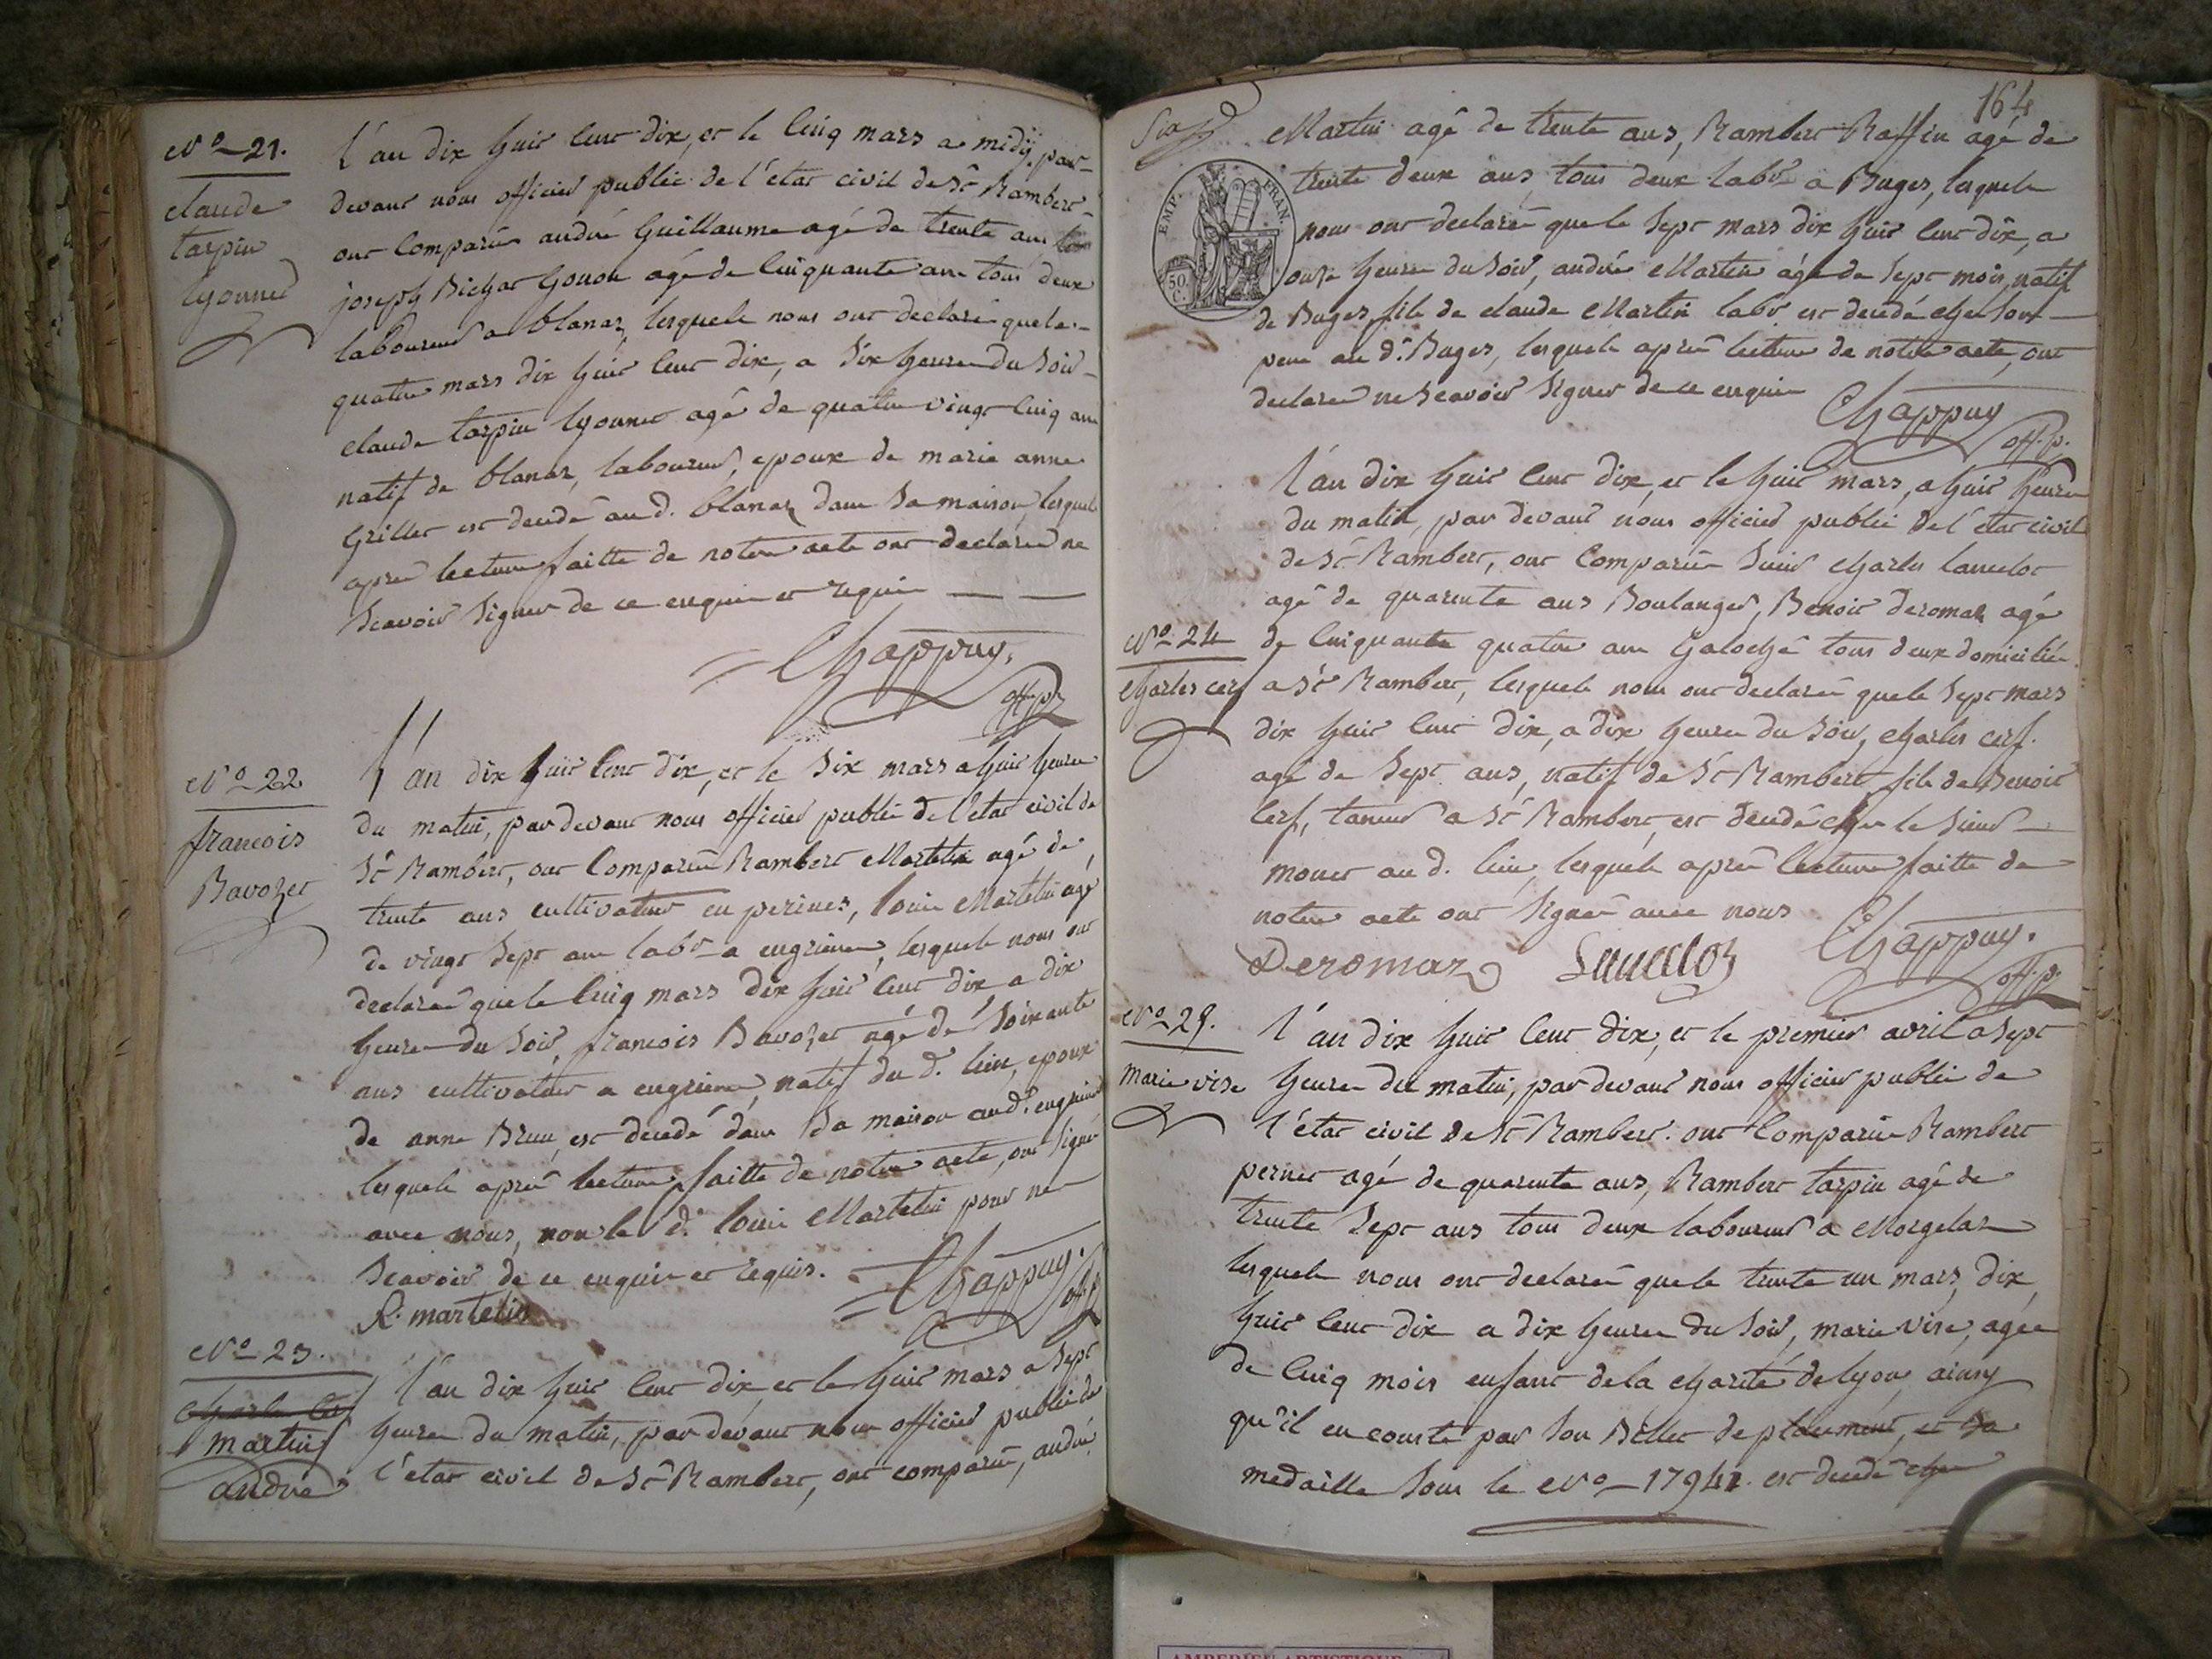 N° 21.
claude
tarpin
lyonnet
L'an dix huit cent dix, et le cinq mars a midÿ, par
devant nous officier public de l'etat civil de St Rambert
ont comparus andré Guillaume agé de trente ans
joseph Bichat Gonon agé de cinquante ans tous deux
laboureurs a blanaz, lesquels nous ont declaré que le
quatre mars dix huit cent dix, a six heures du soir
claude tarpin lyonnet agé de quatre vingt cinq ans
natif de blanaz, laboureur, epoux de marie anne
Grillet est decedé au d. blanaz dans sa maison, lesquels
apres lecture faitte de notre acte ont declarés ne
scavoir signer de ce enquis et requis
Chappuy.
off. p.
N° 22
francois
Bavozet
L'an dix huit cent dix, et le six mars a huit heures
du matin, par devant nous officier public de l'etat civil de
St Rambert, ont comparus Rambert Martelin agé de
trente ans cultivateur en perines, louis Martelin agé
de vingt sept ans labr a engrieres, lesquels nous ont
declarés que le cinq mars dix huit cent dix a dix
heures du soir, francois Bavozet agé de soixante
ans cultivateur a engrieres, natif du d. lieu, epoux
de anne Brun, est decedé dans sa maison aud. engrieres
lesquels apres lecture faitte de notre acte, ont signé
avec nous, non le d. louis Martelin pour ne
scavoir de ce enquis et requis.
Chappuy.
off. p.
R. martelin
N° 23.
charles cerf
martin
andré
L'an dix huit cent dix, et le huit mars a sept
heures du matin, par devant nous officier public de
l'etat civil de St Rambert, ont comparus, andré
164
Six
Martin agé de trente ans, Rambert Raffin agé de
trente deux ans tous deux labrs a Buges, lesquels
nous ont declarés que le sept mars dix huit cent dix, a
onze heures du soir, andré Martin agé de sept mois, natif
de Buges, fils de claude Martin labr est decedé chez son
pere au d. Buges, lesquels apres lecture de notre acte, ont
declarés ne scavoir signer de ce enquis
EMP. FRAN.
50
C.
Chappuy
off. p.
L'an dix huit cent dix, et le huit mars, a huit heures
du matin, par devant nous officier public de l'etat civil
de St Rambert, ont comparus sieur charles lancelot
agé de quarente ans Boulanger, Benoit deromaz agé
N° 24
charles cerf
de cinquante quatre ans Galoché tous deux domiciliés
a St Rambert, lesquels nous ont declarés que le sept mars
dix huit cent dix, a dix heures du soir, charles cerf.
agé de sept ans, natif de St Rambert, fils de Benoit
Cerf, taneur a St Rambert, est decedé chez le sieur
monet au d. lieu, lesquels apres lecture faitte de
notre acte ont signés avec nous
Chappuy.
off. p.
Deromaz Lancelot
N° 25.
marie vise
L'an dix huit cent dix, et le premier avril a sept
heures du matin, par devant nous officier public de
l'etat civil de St Rambert. ont comparus Rambert
pernet agé de quarente ans, Rambert tarpin agé de
trente sept ans tous deux laboureurs a Morgelas
lesquels nous ont declarés que le trente un mars, dix
huit cent dix a dix heures du soir, marie vise, agée
de cinq mois enfant de la charité de lyon, ainsy
qu'il en conste par son Billet de placement, et sa
medaille sous le N° 1794. est decedé chez